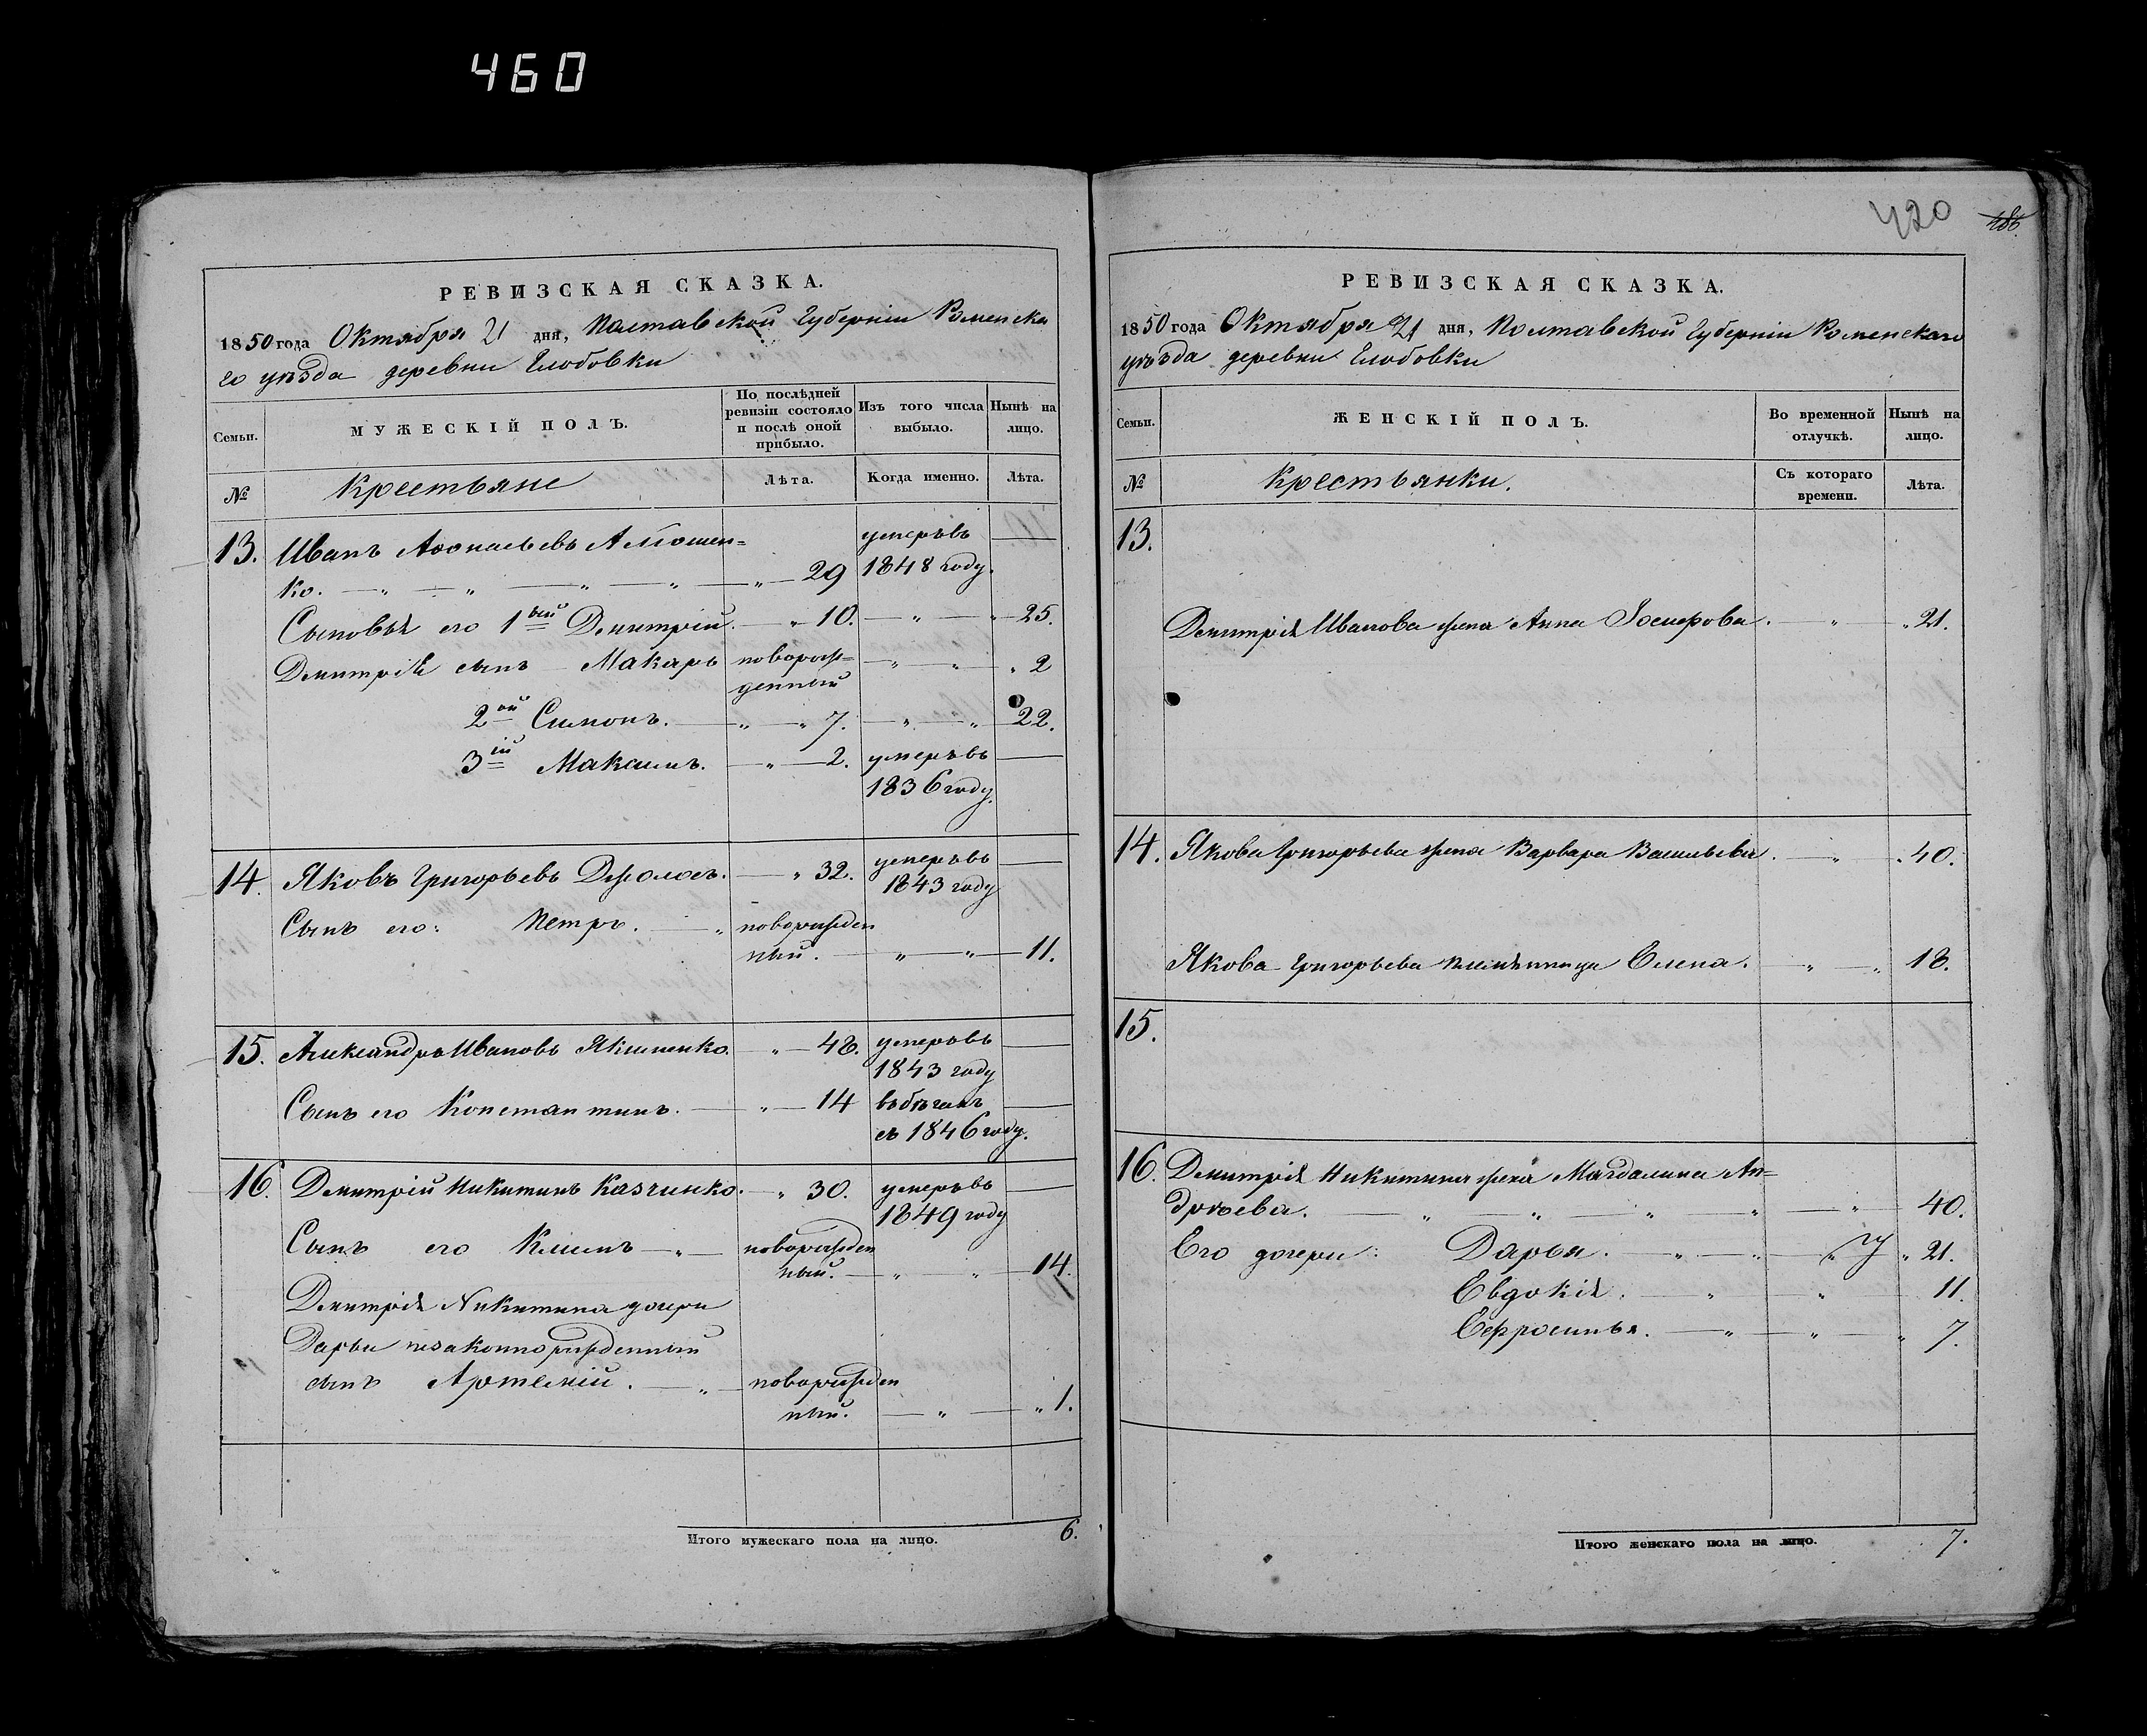 460
РЕВИЗСКАЯ СКАЗКА.
1850 года Октября 21 дня, Полтавской Губернiи Роменска
го уѣзда деревни Глобовки
Семьи.
МУЖЕСКIЙ ПОЛЪ.
По послѣдней ревизiи состояло и послѣ оной прибыло.
Изъ того числа выбыло.
Нынѣ на лицо.
№
Крестьяне
Лѣта.
Когда именно.
Лѣта.
13. Иванъ Афонасьевъ умеръ въ
ко. 29 1848 году.
Сыновья его 1ый Дмитрiй. 10. 25.
Дмитрiя сынъ Макаръ новорож= 2
денный
2ой Симонъ. 7. 22.
3iй Максимъ. 2. умеръ въ
1836 году.
14. Яковъ Григорьевъ 32. умеръ въ
1843 году
Сынъ его: Петръ. новорожден
ный. 11.
15. Александръ Ивановъ Якименко. 48. умеръ въ
1843 году
Сынъ его Константинъ. 14 въ бѣгахъ
съ 1846 году.
16. Дмитрiй Никитинъ Казчинко. 30. умеръ въ
1849 году
Сынъ его Климъ новорожден
ный. 14.
Дмитрiя Никитина дочери
Дарьи незаконнорожденный
сынъ Артемiй. новорожден
ный. 1.
Итого мужескаго пола на лицо. 6.
420 486
РЕВИЗСКАЯ СКАЗКА.
1850 года Октября 21 дня, Полтавской Губернiи Роменскаго
уѣзда деревни Глобовки
Семьи.
ЖЕНСКIЙ ПОЛЪ.
Во временной отлучкѣ.
Нынѣ на лицо.
№
Крестьянки.
Съ котораго времени.
Лѣта.
13.
Дмитрiя Иванова жена Анна Iосифова. 21.
14. Якова Григорьева жена Варвара Васильева. 40.
Якова Григорьева племянница Олена. 18.
15.
16. Дмитрiя Никитина жена Магдалина Ан=
дрѣева. 40.
Его дочери: Дарья. 21.
Евдокiя. 11.
Ефросинья. 7.
Итого женскаго пола на лицо. 7.